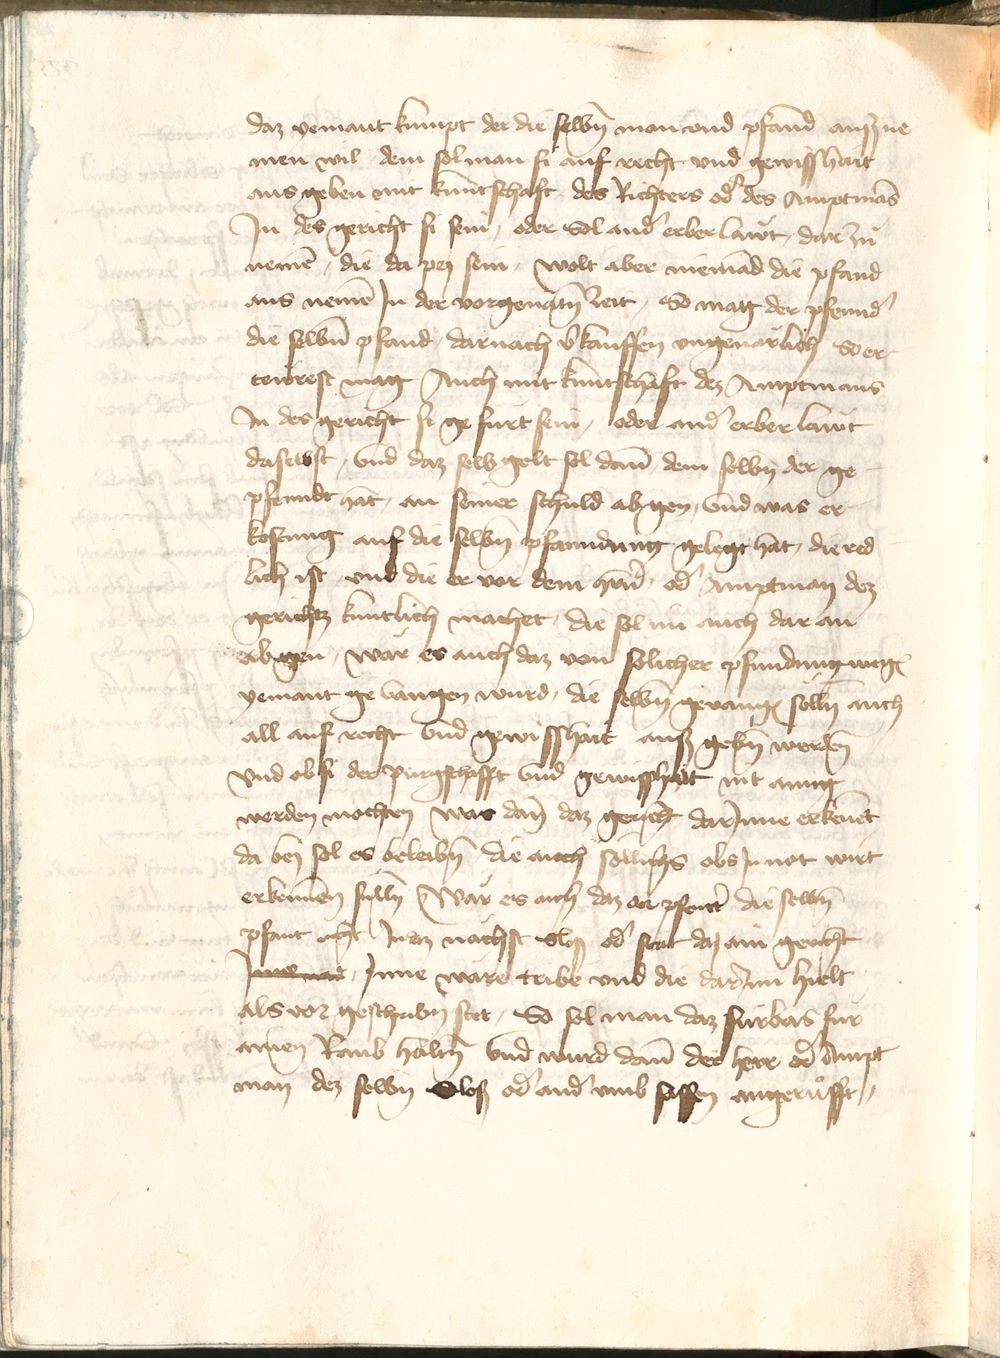 daz yemant kumpt der die selbn̄ man vnd pfannd außzne
men wil dem sol man si auf recht vnd gewisshait
aus geben mit kuntschaft des Richters od' des Amptmās
In des gericht si sein, oder Sol and' erber lawt, dar zu
nemē, die da pey sein, wolt aber niemād die pfand
aus nemē In der vorgenātn̄ zeit, So mag der pfennd'
die selbn̄ pfand, darnach v'kauffen vngeuarlich So er
tewrest mag Auch mit kuntschaft dez Amptmans
In des gericht si gefürt sein, oder and' erber lawt
daselbst, vnd daz selb gelt sol dañ, dem selbn̄ der ge
pfenndt hat, an seiner schuld abgen, vnd was er
kosung auf die selbn̄ pfanndung gelegt hat, die red
lich ist, vnd die er vor dem od' Amptman dez
gerichtz kuntlich machet, die sol im auch dar an
abgen, wär es auch daz von solicher pfandung weḡ
yemant geuangen wurd, die selbn̄ geuanḡ solln̄ auch
all auf recht vnd gewisshait auß gebn̄ werdn̄
vnd ob si der purgschafft vnd gewisshait nit ainig
werden mochten was dañ daz gericht darInne erkennēt
da bey sol es beleibn̄ die auch sollichs obs In not wirt
erkennen sulln̄ Wär es auch daz der pfent' die selbn̄
pfant nicht In daz nachst Slos od' stat da ain gericht
Inne wäre tribe vnd die darīnn hielt
als vor geschribn̄ stet, So sol man daz fürbas für
ainen Raub haltn̄ vnd wurd dañ der herr od' Ampt
man dez selbn̄ Sloß od' and' vmb sassen angerufft,